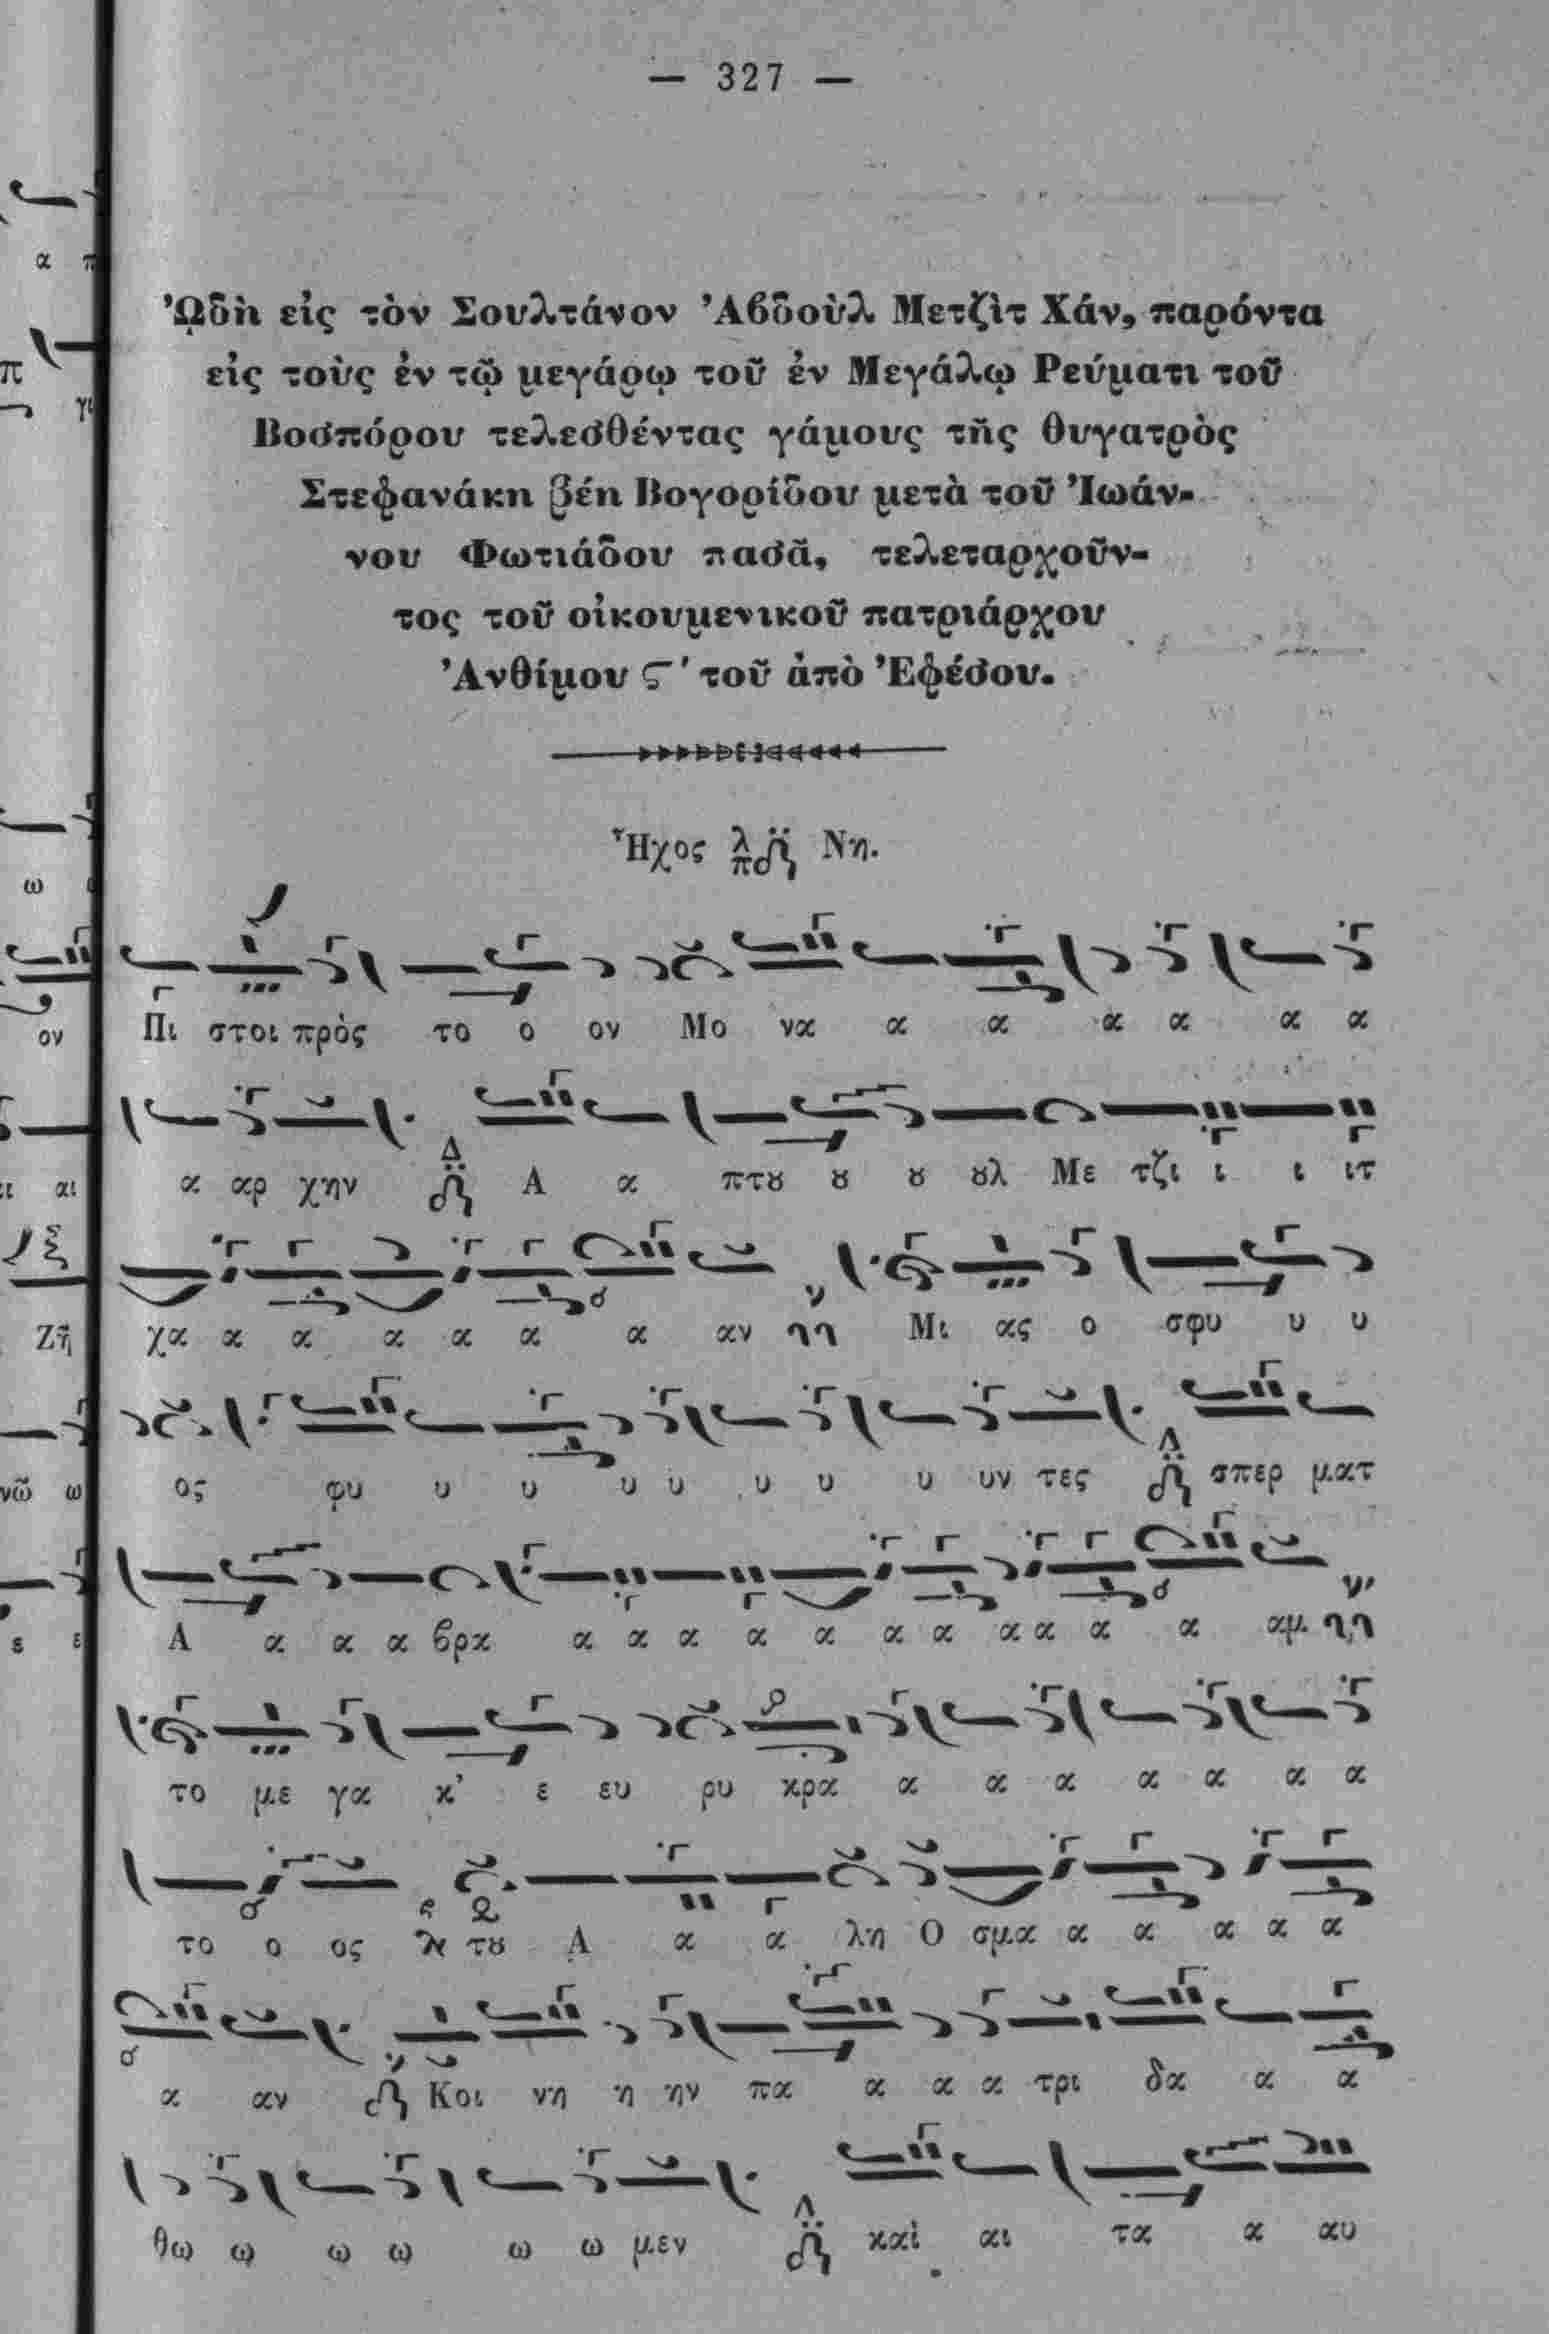 — 327 —
Ὠδὴ εἰς τὸν Σουλτάνον Ἀβδοὺλ Μετζὶτ Χάν, παρόντα
εἰς τοὺς ἐν τῷ μεγάρῳ τοῦ ἐν Μεγάλῳ Ρεύματι τοῦ
Βοσπόρου τελεσθέντας γάμους τῆς θυγατρὸς
Στεφανάκη βέη Βογορίδου μετὰ τοῦ Ἰωάν-
νου Φωτιάδου πασᾶ, τελεταρχοῦν-
τος τοῦ οἰκουμενικοῦ πατριάρχου
Ἀνθίμου Ϛʹ τοῦ ἀπὸ Ἐφέσου.
Ἦχος Νη.
Πι στοι πρὸς το ο ον Μο να α α α α α α
α αρ χην Α α πτȣ ȣ ȣ ȣλ Με τζι ι ι ιτ
χα α α α α α α αν Μι ας ο σφυ υ υ
ος φυ υ υ υ υ υ υ υ υν τες σπερ ματ
Α α α α βρα α α α α α α α α α α α αμ
το με γα κ’ ε ευ ρυ κρα α α α α α α α
το ο ος τȣ Α α α λη Ο σμα α α α α α
α αν Κοι νη η ην πα α α α τρι δα α α
θω ω ω ω ω ω μεν καὶ αι τα α αυ